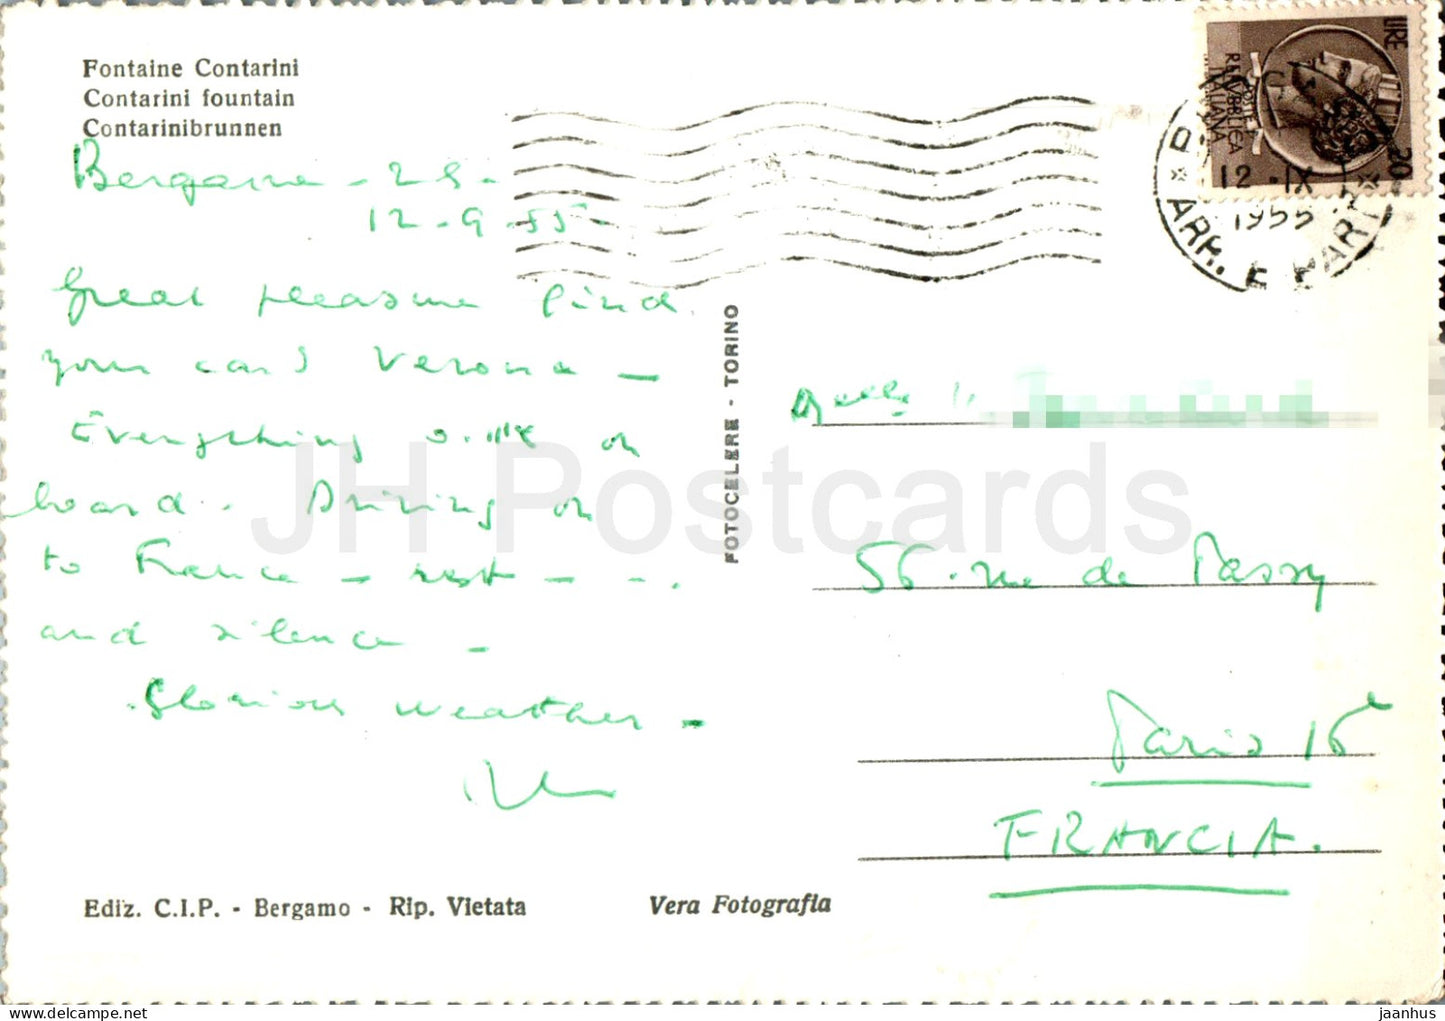 Fontaine Contarini
Contarini fountain
Contarinibrunnen
12-9-55
Great pleasure find
your card Verona -
Everything on
board. Driving on
to France - rest - - .
and silence -
Glorious weather -
Ediz. C.I.P. - Bergamo - Rip. Vietata
Vera Fotografia
FOTOCELERE - TORINO
LIRE 20
REPUBBLICA
ITALIANA
12 . IX
1955
ARR. E PAR
56. rue de Passy
Paris 16e
FRANCIA.
JH Postcards
jaanhus